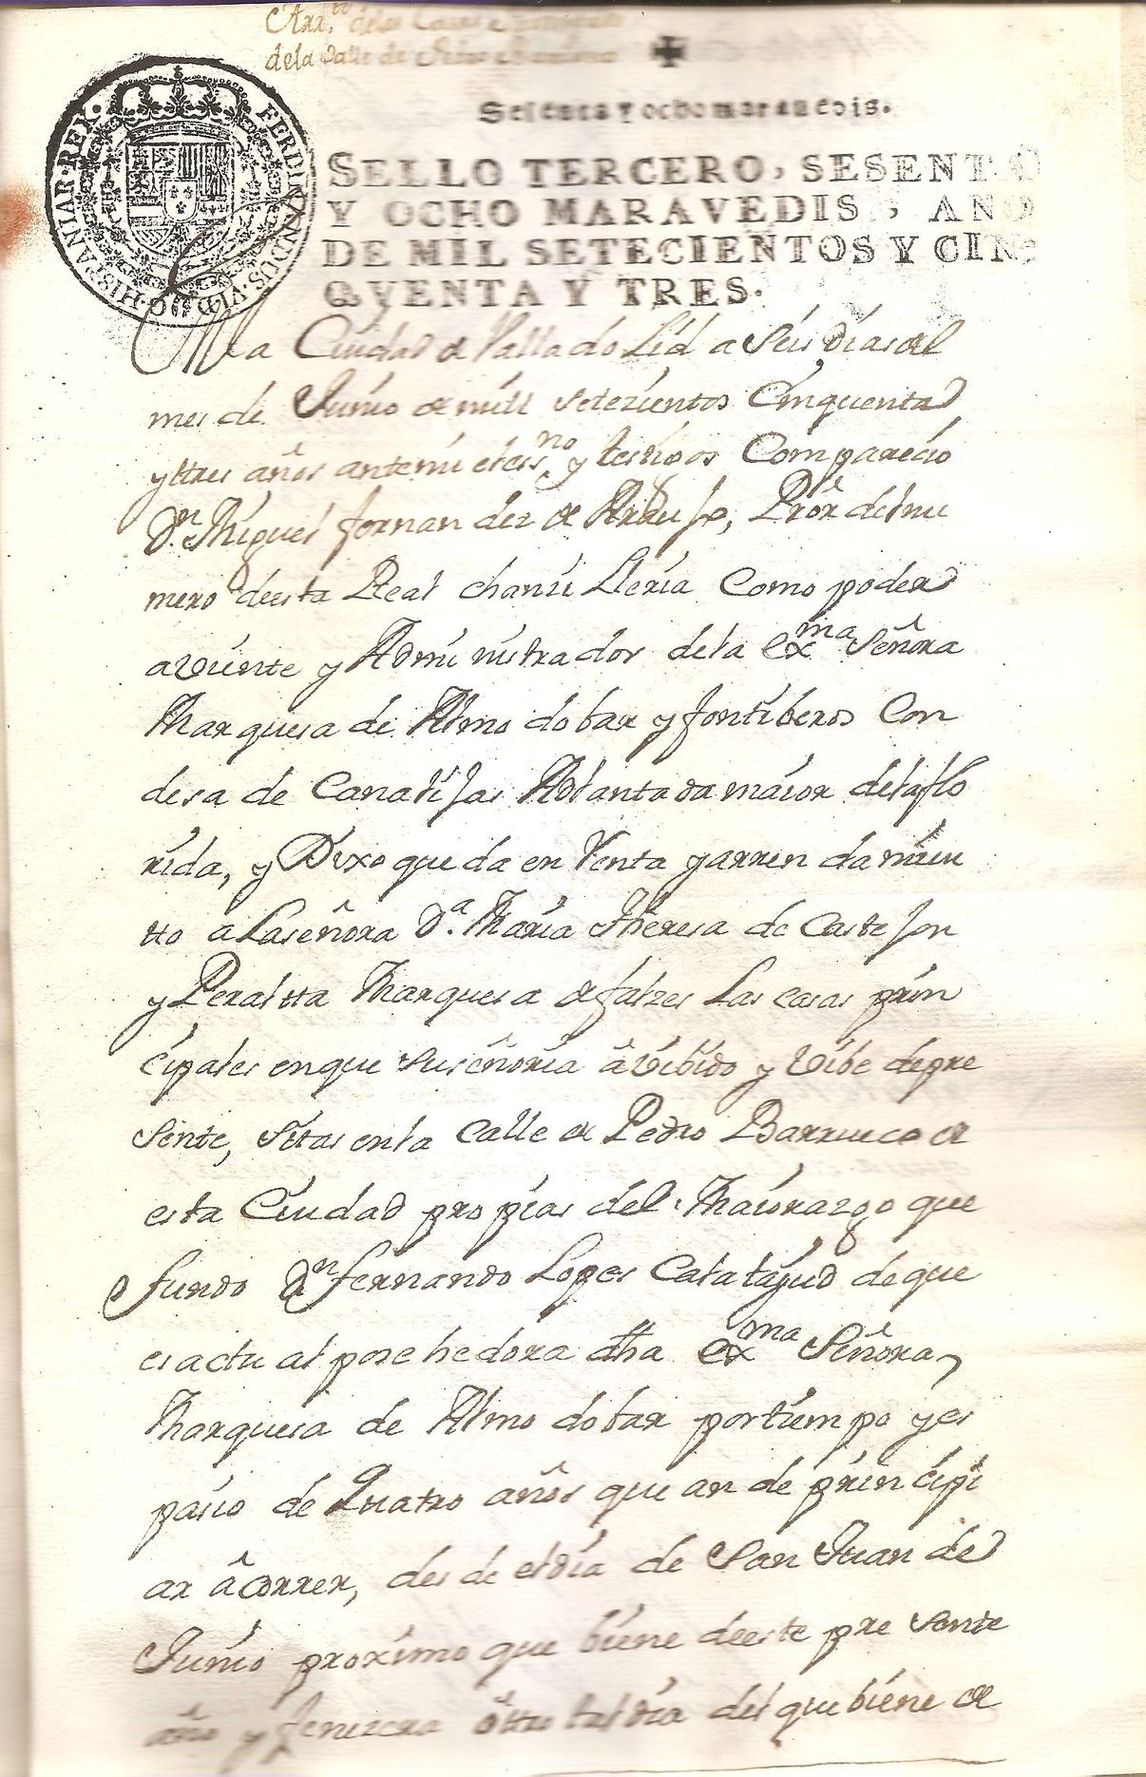 Arr.to de las Casas
de la Calle de Pedro Barrueco
Sesenta y ocho maravedis.
FERDINANDUS·VI·D·G·HISPANIAR·REX·
SELLO TERCERO, SESENTA
Y OCHO MARAVEDIS, AÑO
DE MIL SETECIENTOS Y CIN-
QVENTA Y TRES.
En la Ciudad de Valladolid a Seis dias del
mes de Junio de mill setezientos Cinquenta
y ttres años ante mi el ess.no y testigos Comparecio
Dn. Miguel fernandez de Araujo, Pror del nu
mero de esta Real chanzilleria Como poder
aviente y Administrador de la exma Señora
Marquesa de Almodobar y fontiberos Con
desa de Canalejas Adlantada maior de la flo
rida, y Dixo que da en Renta y arrendamien
tto a la señora Da. Maria Theresa de Castejon
y Peraltta Marquesa de falzes Las casas prin
cipales en que su señoria â vibido y vibe de pre
sente, sitas en la Calle de Pedro Barrueco de
esta Ciudad propias del Maiorazgo que
fundo Dn fernando Lopes Calatajud de que
es actual posehedora dha exma Señora,
Marquesa de Almodobar por tiempo y es
pacio de Quatro años que an de principi
ar â correr, desde el dia de San Juan de
Junio proximo que biene de este presente
año y fenezera ôtro tal dia del que biene de